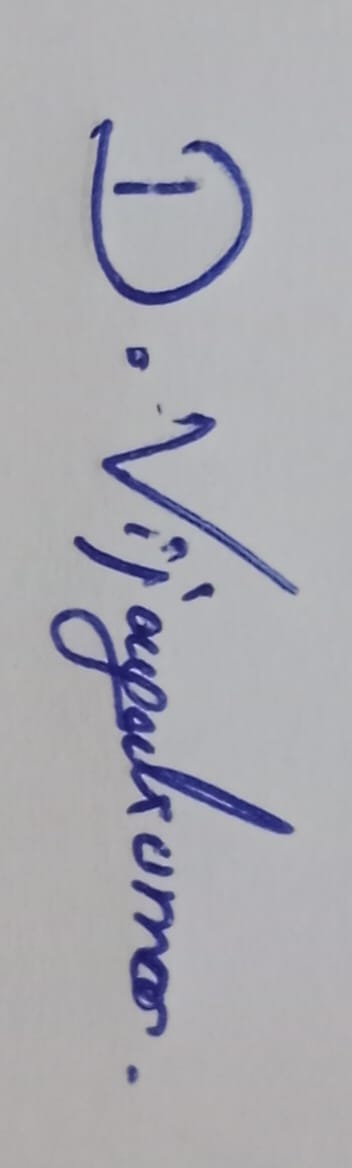 D. Vijayakumar.